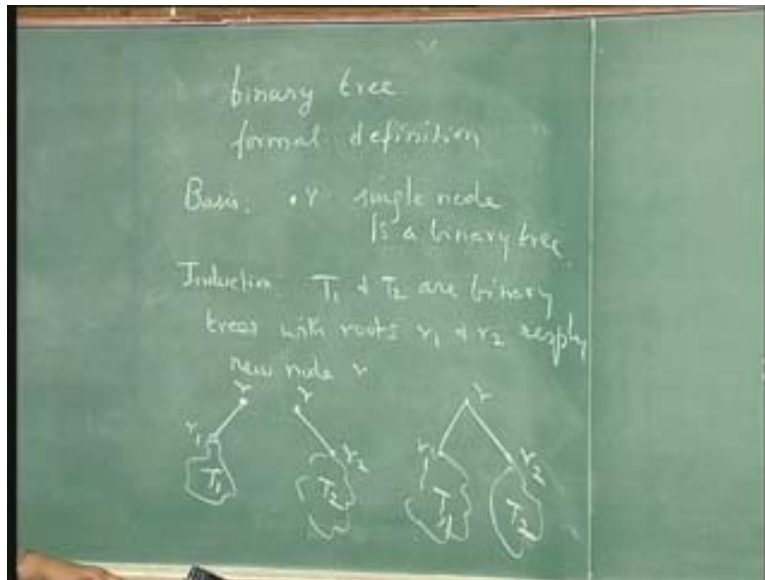 binary tree
formal definition
Basis: . r single node
is a binary tree
Induction. T1 & T2 are binary
trees with roots r1 & r2 resply
new node r
r r r
r1 r2 r1 r2
T1 T2 T1 T2